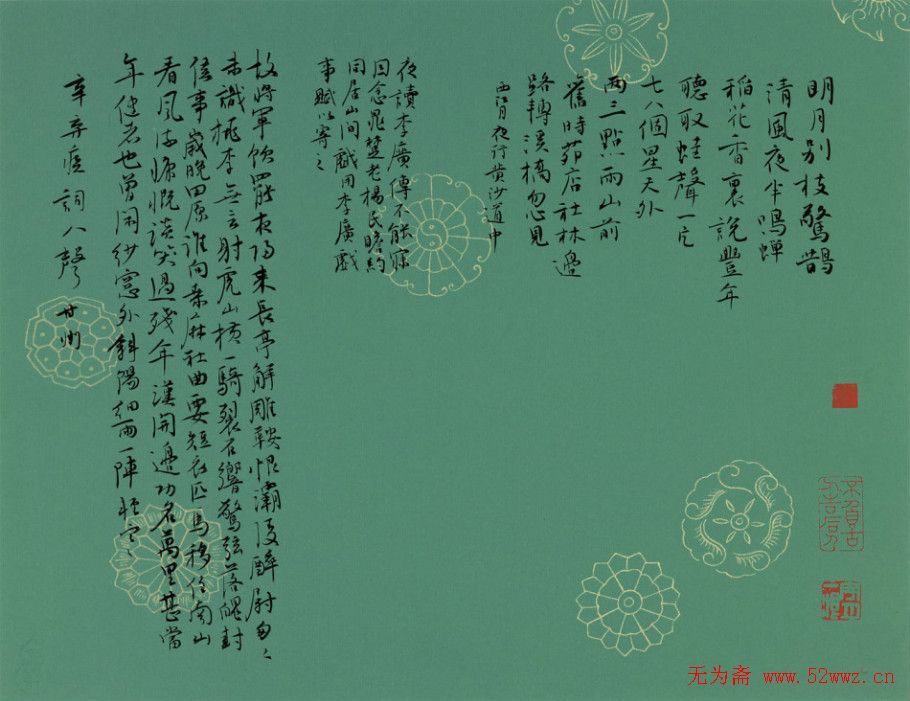 明月别枝驚鹊
清風夜半鳴蝉
稻花香裏說豐年
聽取蛙聲一片
七八個星天外
兩三點雨山前
舊時茆店社林邊
路轉溪橋忽見
西江月夜行黄沙道中
夜讀李廣傳不能寐
因念晁楚老楊民瞻約
同居山间戲用李廣戲
事賦以寄之
故將軍飲罷夜歸来長亭解雕鞍恨灞陵醉尉匆々
未識桃李無言射虎山横一騎裂石響驚弦落魄封
侯事歲晚田原誰向桑麻社曲要短衣匹馬移住南山
看風流慷慨談笑過殘年漢開邊功名萬里甚當
年健者也曾闲紗窓外斜陽細雨一陣輕寒
辛弃疾詞八聲甘州
无为斋 www.52wwz.cn